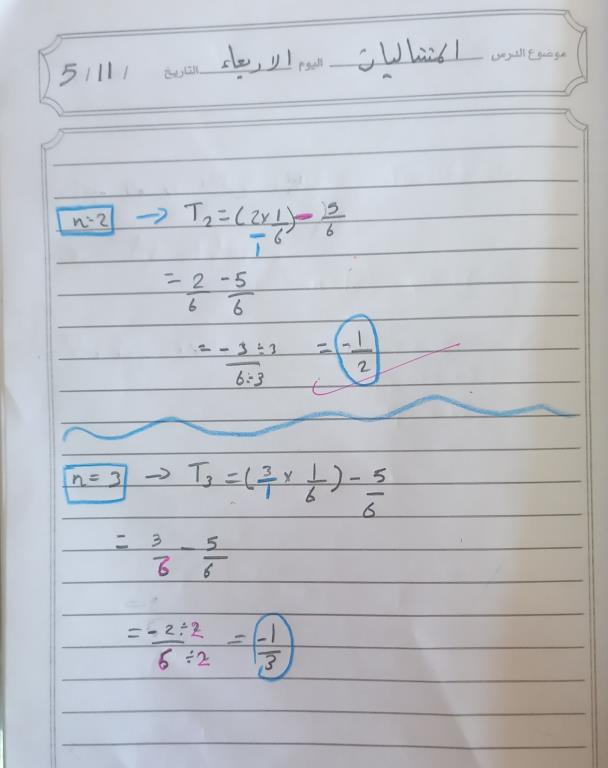 موضوع الدرس المتتاليات اليوم الاربعاء التاريخ 5/11/
n=2 → T₂ = (2/1 × 1/6) - 5/6
= 2/6 - 5/6
= -3÷3/6÷3 = -1/2
n=3 → T₃ = (3/1 × 1/6) - 5/6
= 3/6 - 5/6
= -2÷2/6÷2 = -1/3